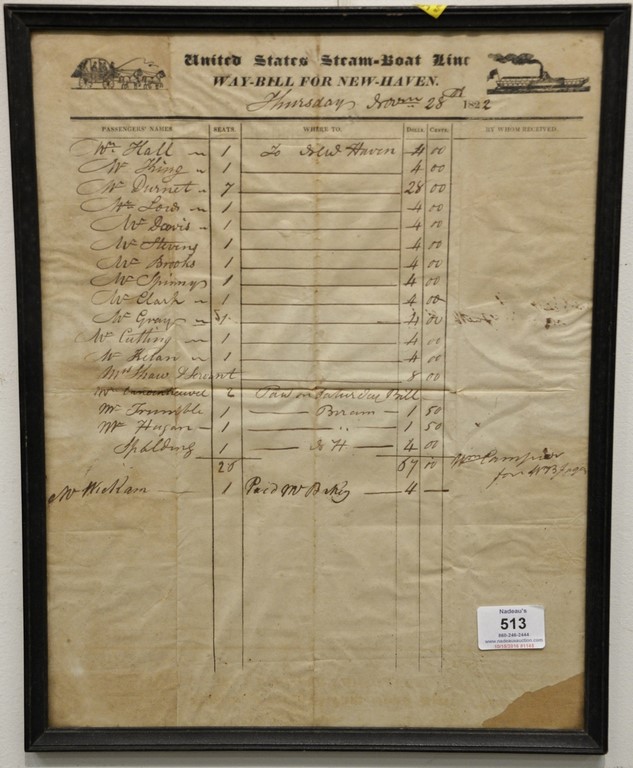 United States Steam-Boat Line
WAY-BILL FOR NEW-HAVEN.
Thursday Novem 28th 1822
PASSENGERS' NAMES. SEATS. WHERE TO. DOLLS. CENTS. BY WHOM RECEIVED.
Mr Hall " 1 To New Haven 4 00
Mr King " 1 4 00
Mr Durnet " 7 28 00
Mr Lord " 1 4 00
Mr Davis " 1 4 00
Mr Stevens 1 4 00
Mr Brooks 1 4 00
Mr Spinnys 1 4 00
Mr Clark " 1 4 00
Mr Gray " 1 4 00
Mr Cutting " 1 4 00
Mr Kelan " 1 4 00
Mrs Shaw & Servant 8 00
Mr 2 Paid on Saturday Bill
Mr Trumble 1 1 50
Mr Hagan 1 " 1 50
Spalding 1 N H 4 00
26 67 00 Mr
for
Mr Wickam 1 Paid Mr 4 —
Nadeau's
513
860-246-2444
www.nadeausauction.com